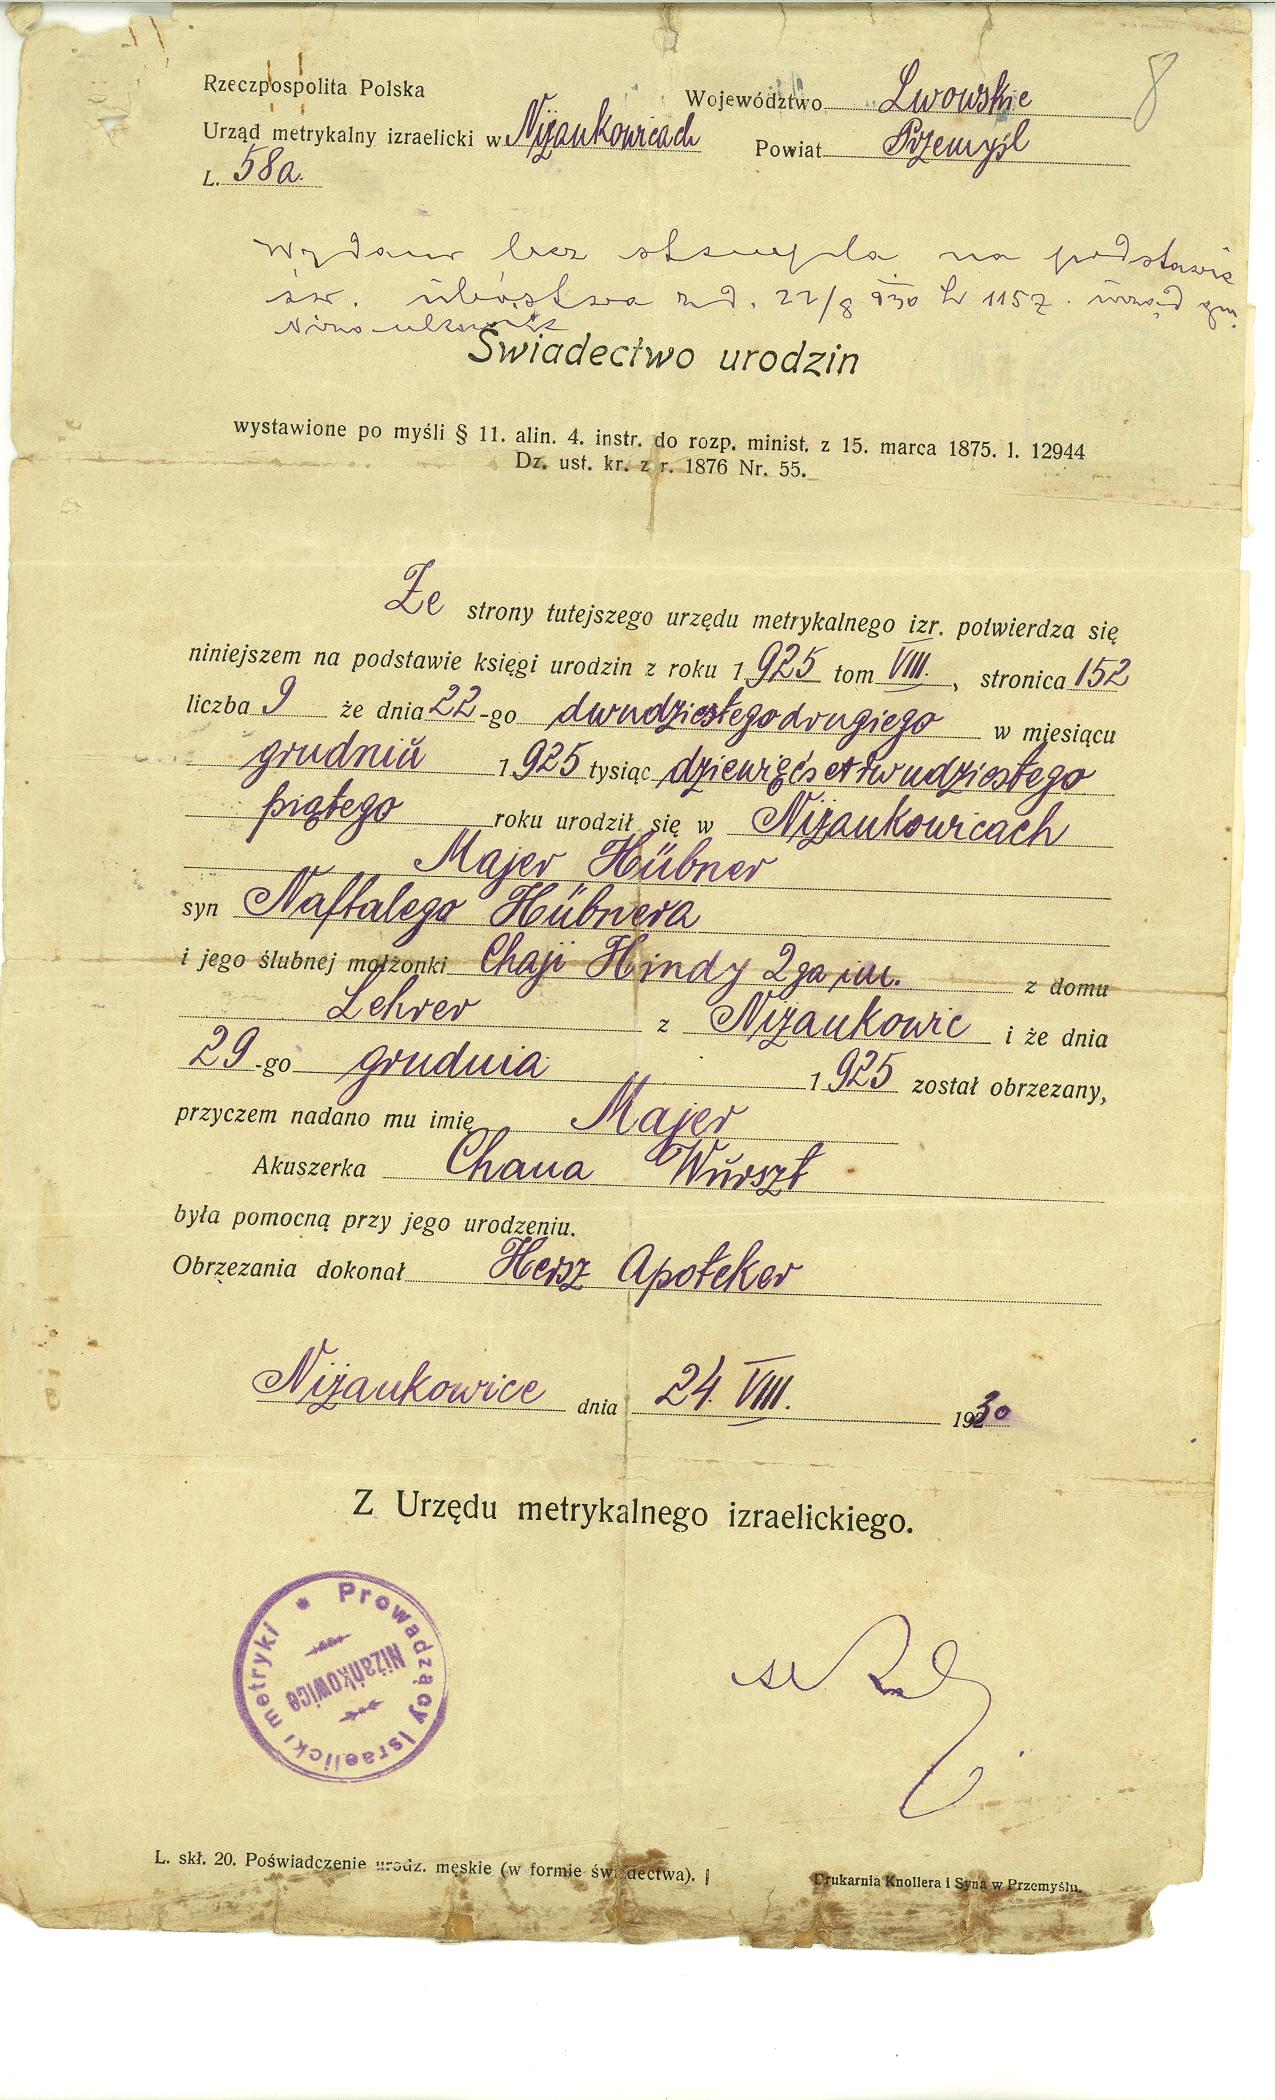 8
Rzeczpospolita Polska
Województwo Lwowskie
Urząd metrykalny izraelicki w Niżankowicach
Powiat Przemyśl
L. 58a.
Wydano bez stempla na podstawie
św. ubóstwa z d. 22/8 930 L 1157. urząd gm.
Świadectwo urodzin
wystawione po myśli § 11. alin. 4. instr. do rozp. minist. z 15. marca 1875. l. 12944
Dz. ust. kr. z r. 1876 Nr. 55.
Ze strony tutejszego urzędu metrykalnego izr. potwierdza się
niniejszem na podstawie księgi urodzin z roku 1925 tom VIII., stronica 152
liczba 9 że dnia 22-go dwudziestego drugiego w miesiącu
grudniu 1925 tysiąc dziewięćset dwudziestego
piątego roku urodził się w Niżankowicach
Majer Hübner
syn Naftalego Hübnera
i jego ślubnej małżonki Chaji Hindy 2ga im. z domu
Lehrer z Niżankowic i że dnia
29-go grudnia 1925 został obrzezany,
przyczem nadano mu imię Majer
Akuszerka Chana Wurszt
była pomocną przy jego urodzeniu.
Obrzezania dokonał Hersz Apoteker
Niżankowice dnia 24. VIII. 1930
Z Urzędu metrykalnego izraelickiego.
Prowadzący Israelicki metryki *
Niżankowice
L. skł. 20. Poświadczenie urodz. męskie (w formie świadectwa).
Drukarnia Knollera i Syna w Przemyślu.